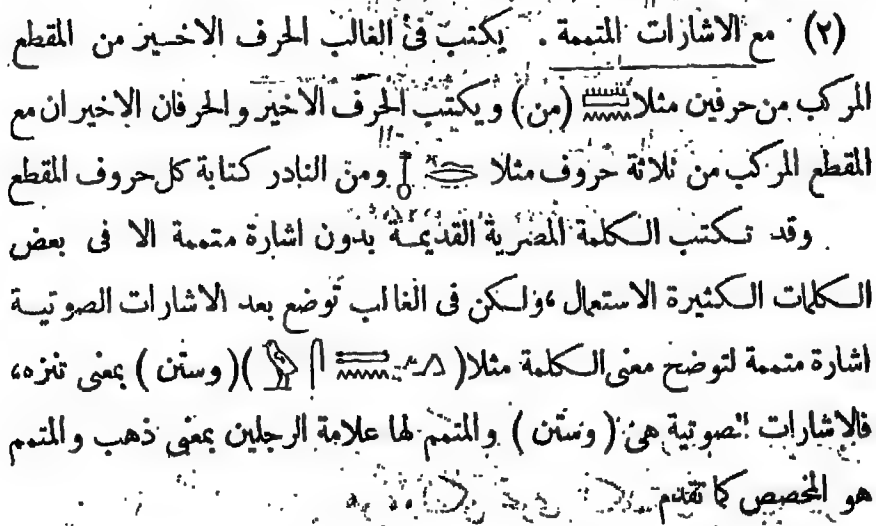 (٢) مع الاشارات المتممة . يكتب فى الغالب الحرف الاخير من المقطع
المركب من حرفين مثلا 𓏠𓈖 (من) ويكتب الحرف الاخير والحرفان الاخيران مع
المقطع المركب من ثلاثة حروف مثلا 𓄤𓆑𓂋 ومن النادر كتابة كل حروف المقطع
وقد تكتب الكلمة المصرية القديمة بدون اشارة متممة الا فى بعض
الكلمات الكثيرة الاستعمال ، ولكن فى الغالب توضع بعد الاشارات الصوتية
اشارة متممة لتوضح معنى الكلمة مثلا ( 𓅱𓋴𓍿𓈖𓂻 ) ( وستن ) بمعنى تنزه ،
فالاشارات الصوتية هى ( وستن ) والمتمم لها علامة الرجلين بمعنى ذهب والمتمم
هو المخصص كما تقدم